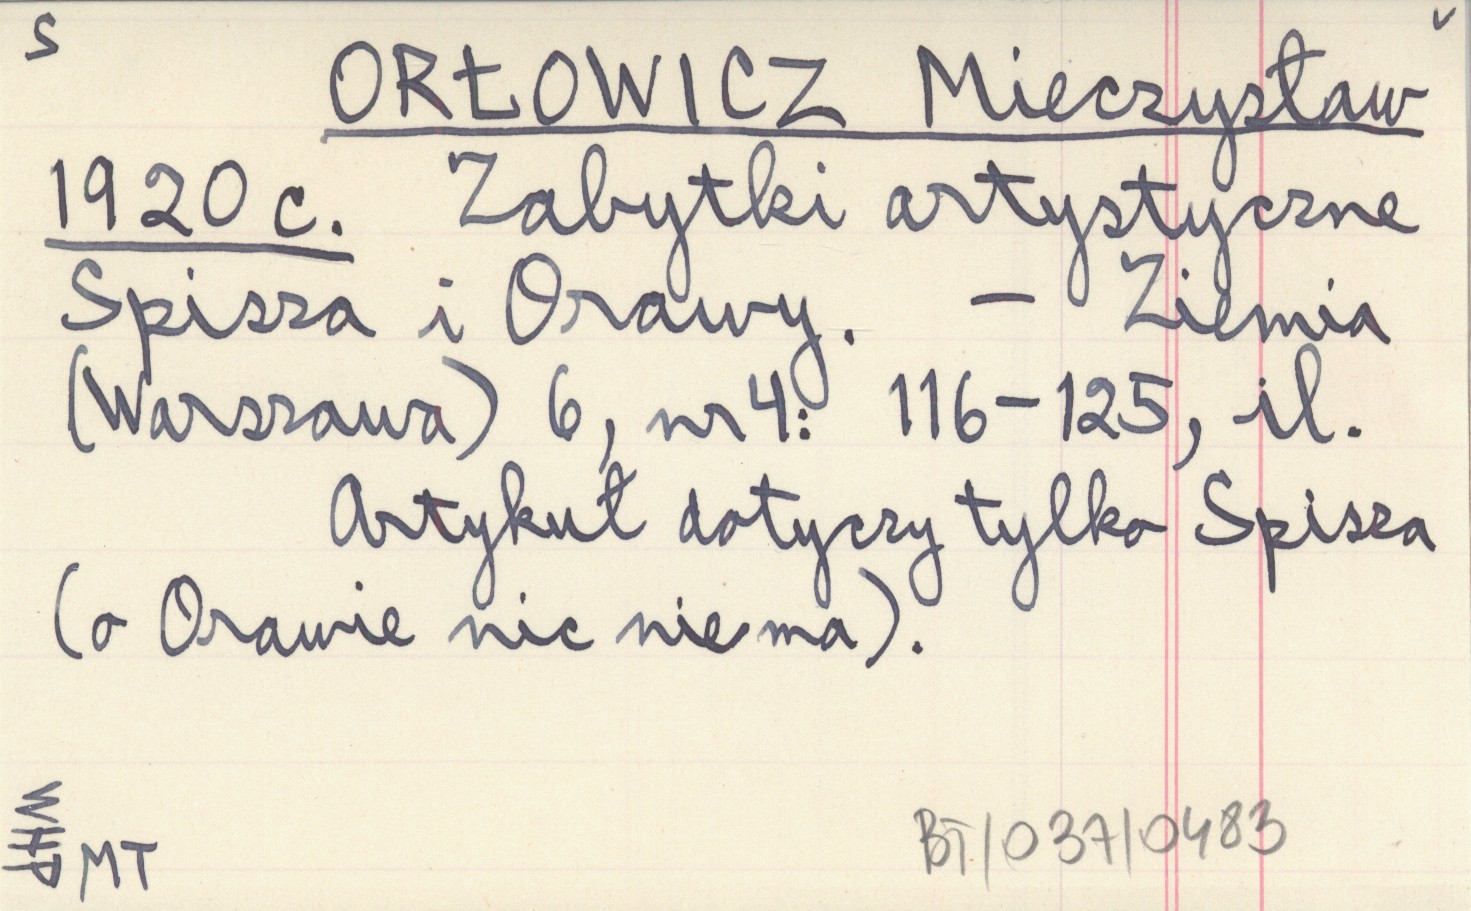 S
v
ORŁOWICZ Mieczysław
1920 c. Zabytki artystyczne
Spisza i Orawy. – Ziemia
(Warszawa) 6, nr 4: 116–125, il.
Artykuł dotyczy tylko Spisza
(o Orawie nic nie ma).
MT
BT/037/0483